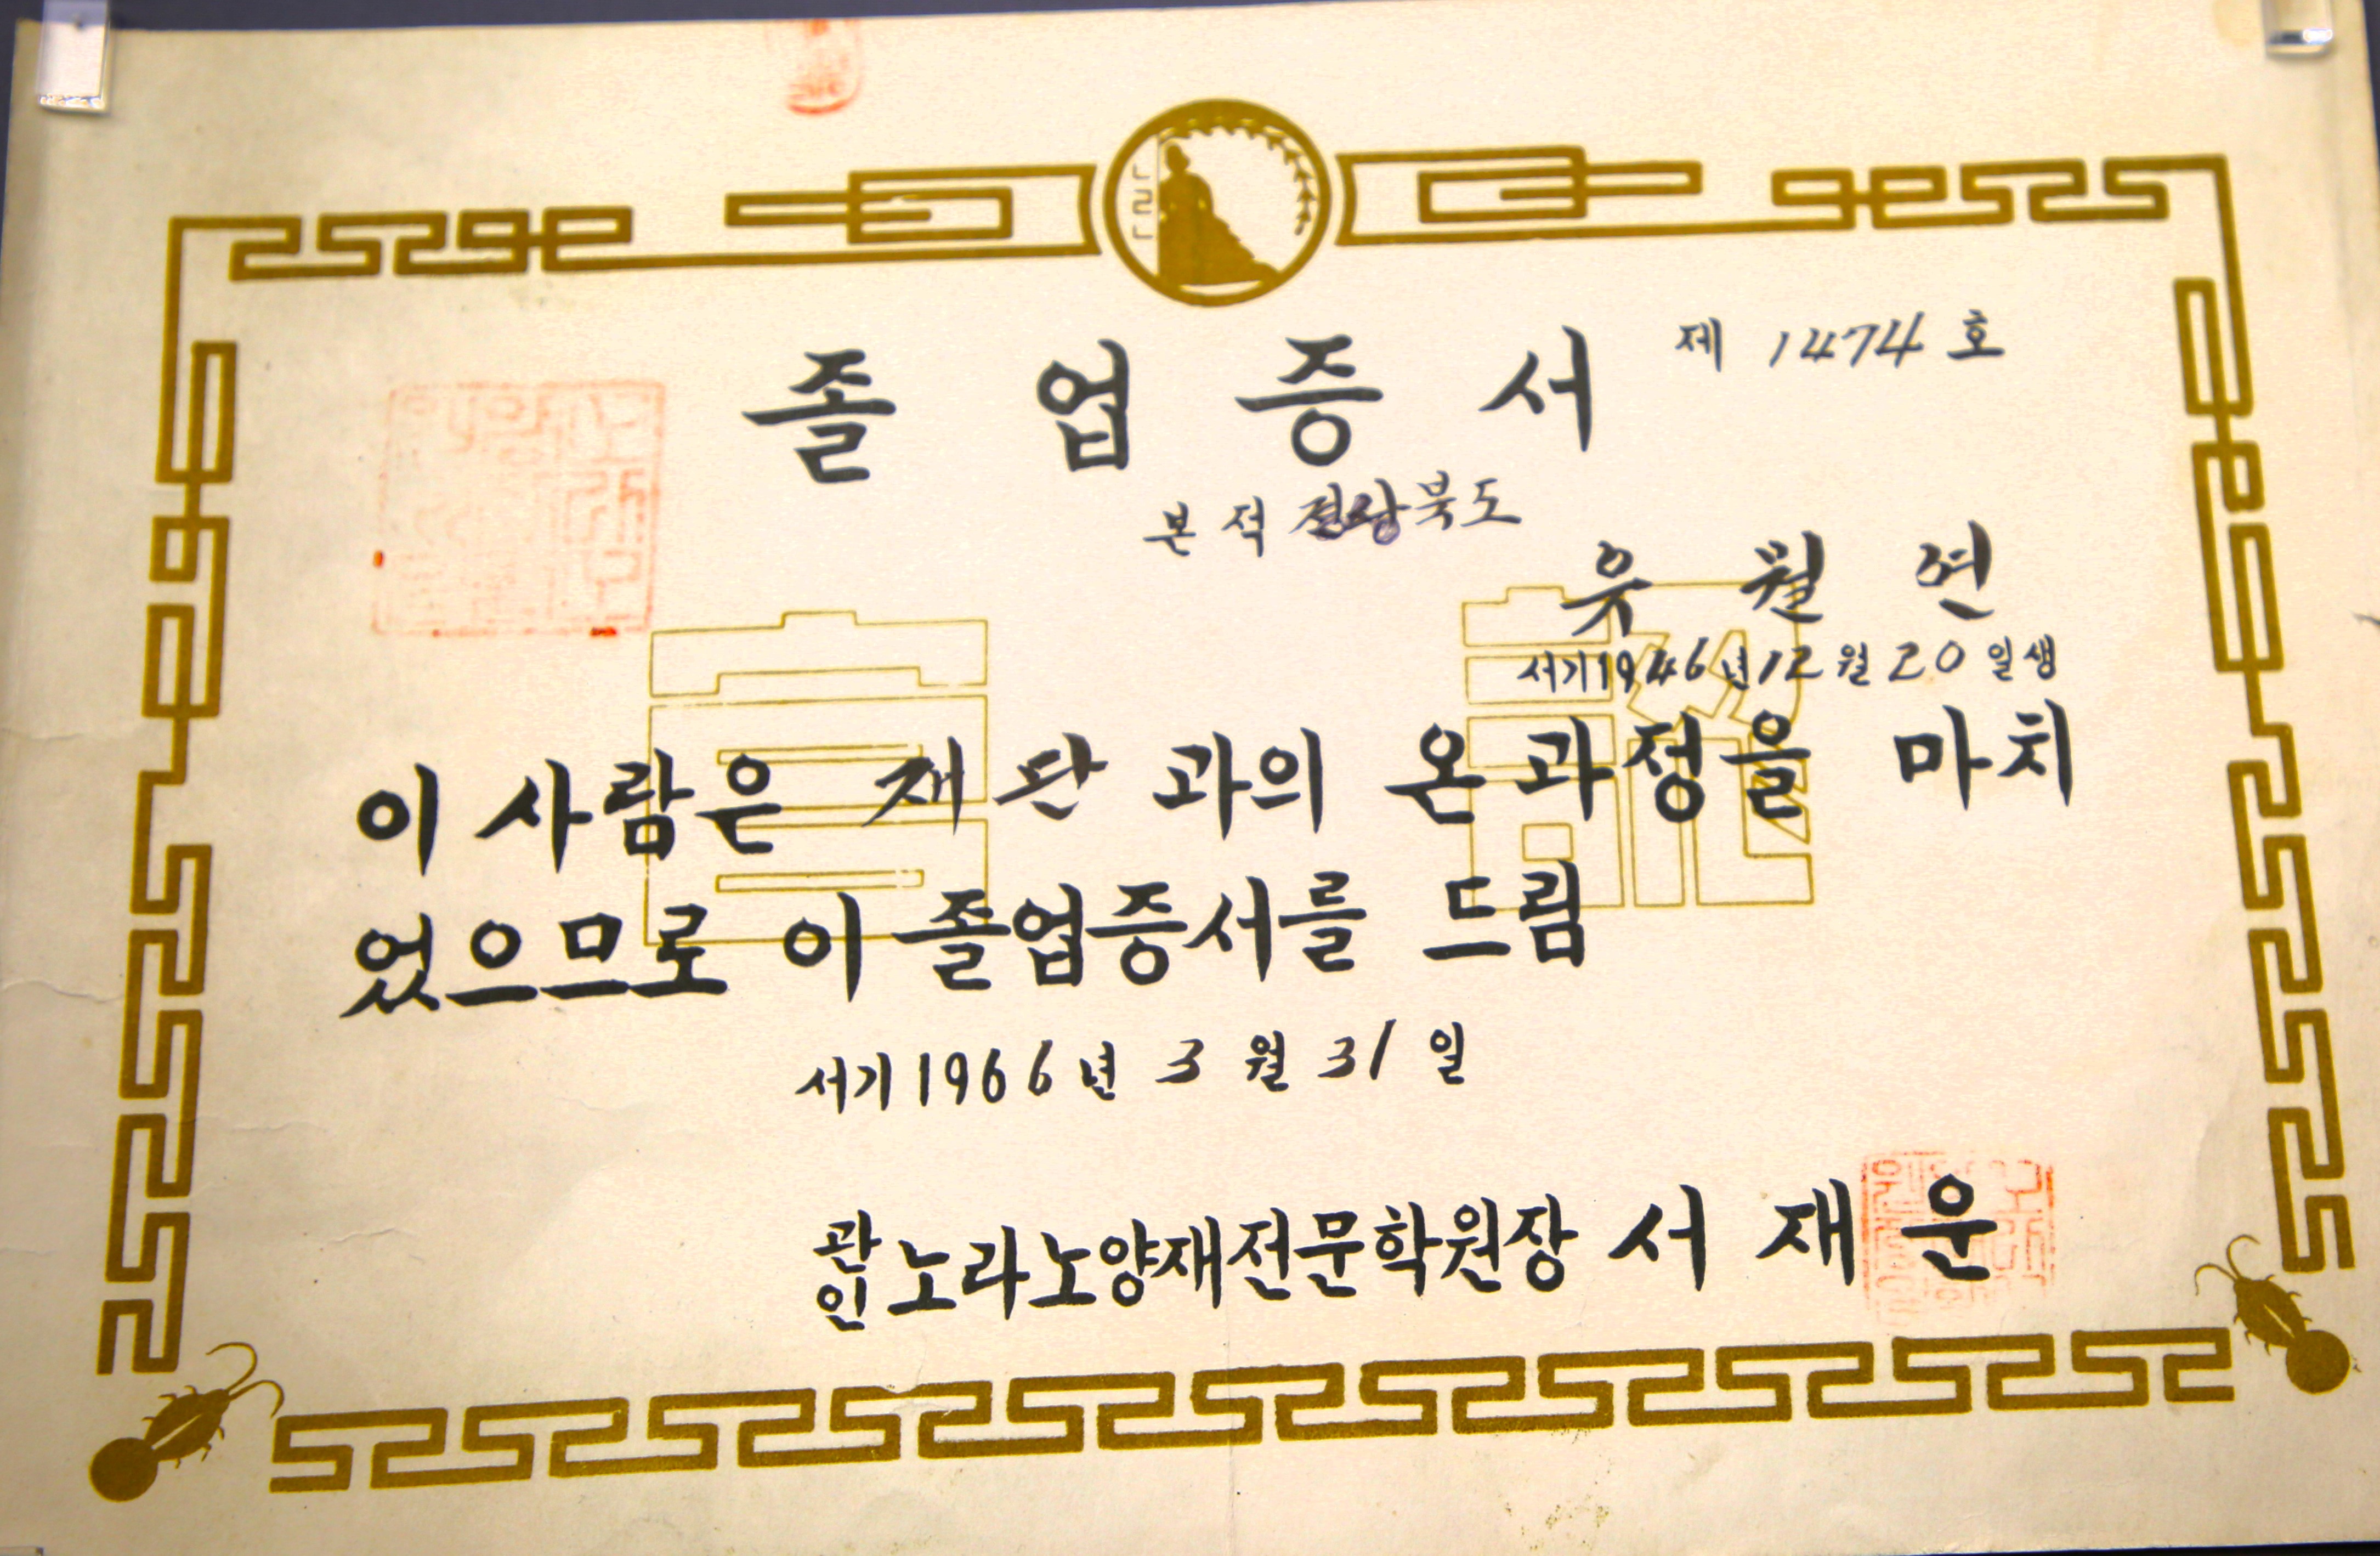 졸업증서 제 1474 호
본적 전라북도
웃 월 연
서기 1946년 12월 20일생
이 사람은 재단과의 온과정을 마치
었으므로 이 졸업증서를 드림
서기 1966년 3월 31일
관인 노라노양재전문학원장 서재운